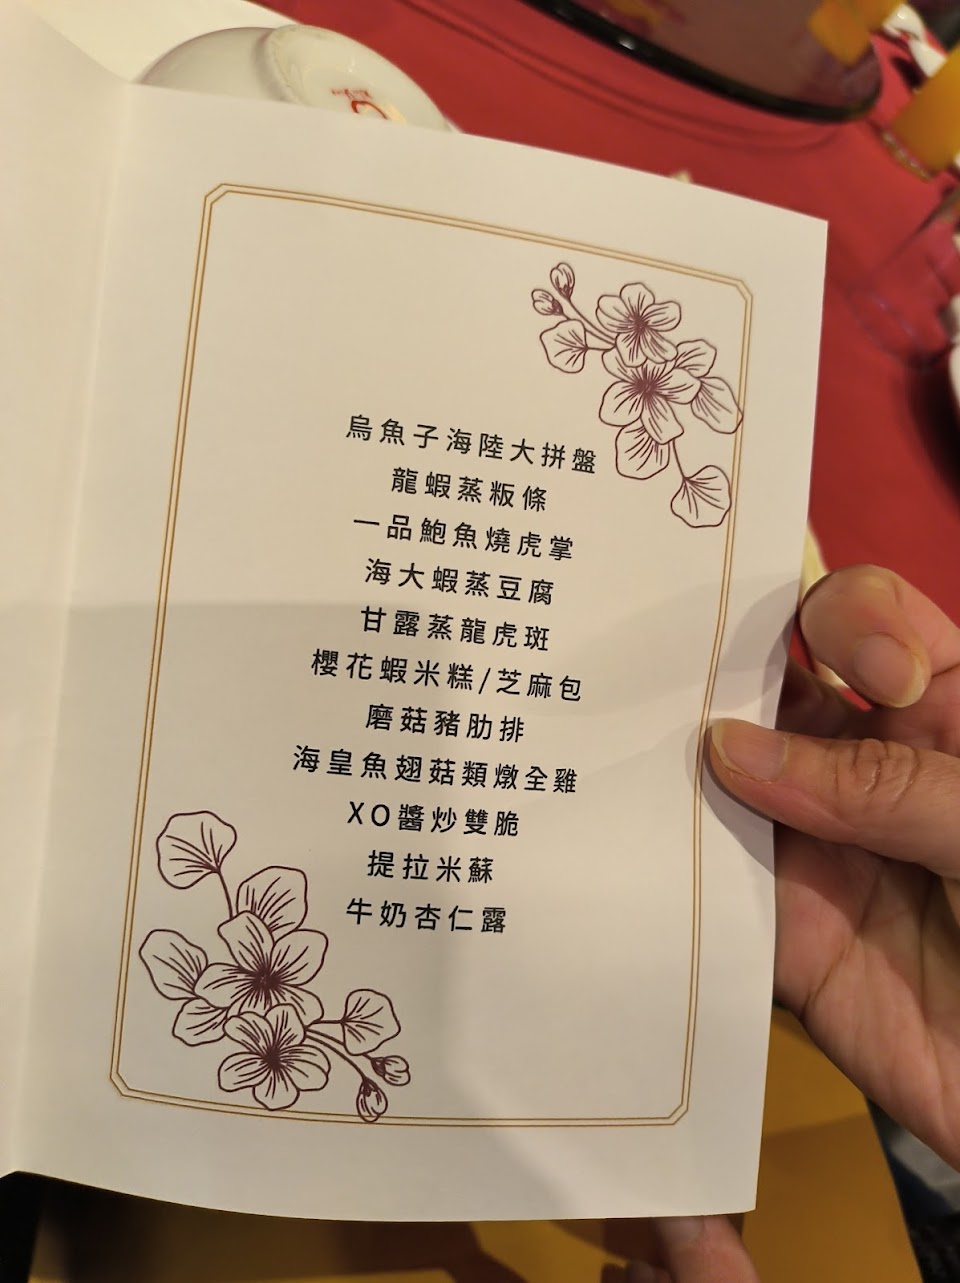 烏魚子海陸大拼盤
龍蝦蒸粄條
一品鮑魚燒虎掌
海大蝦蒸豆腐
甘露蒸龍虎斑
櫻花蝦米糕/芝麻包
磨菇豬肋排
海皇魚翅菇類燉全雞
XO醬炒雙脆
提拉米蘇
牛奶杏仁露